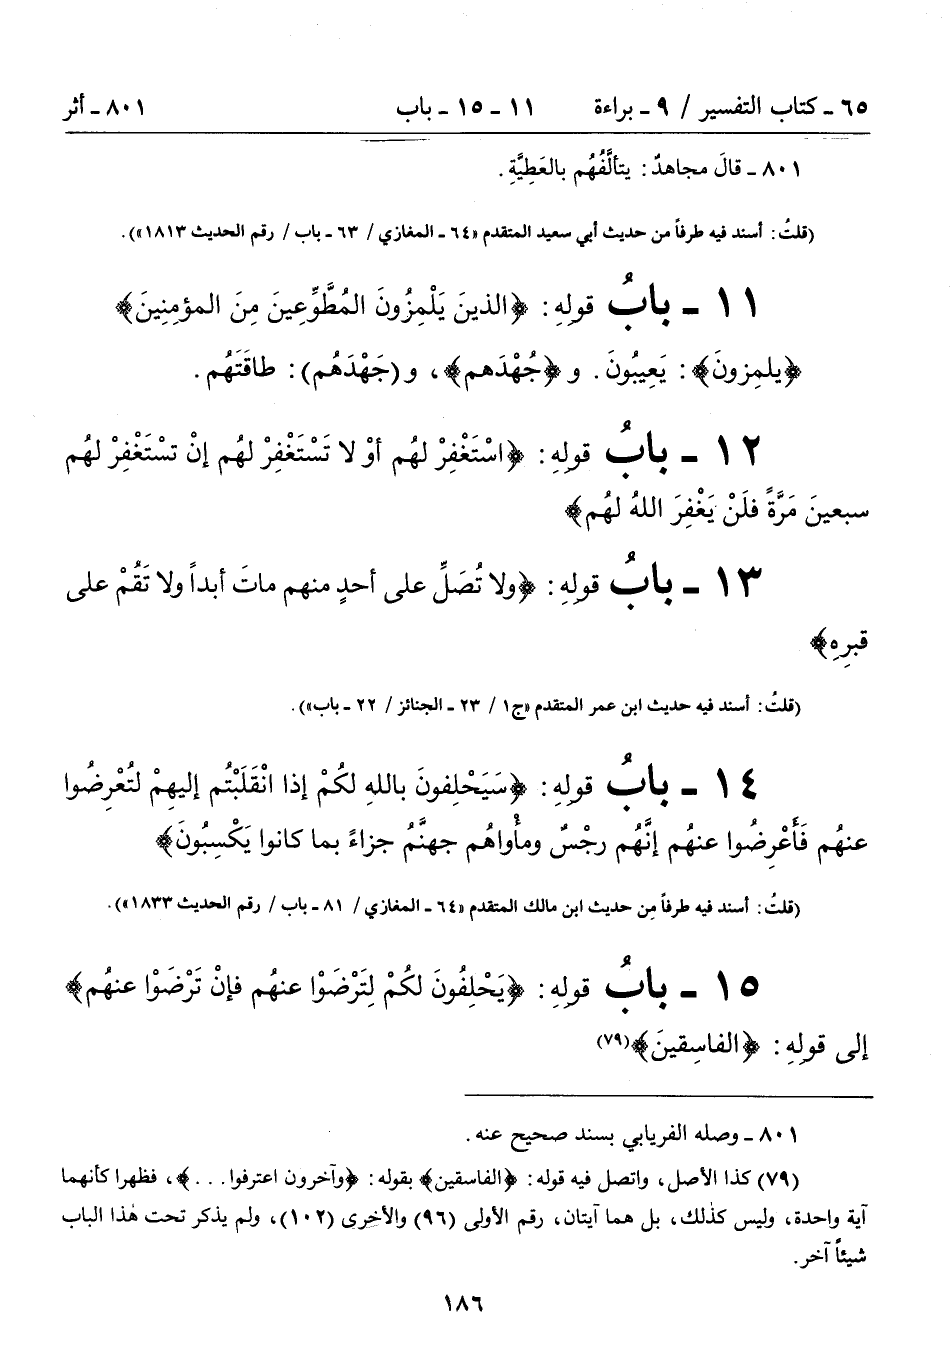 ٦٥ ـ كتاب التفسير / ٩ ـ براءة ١١ ـ ١٥ ـ باب ٨٠١ ـ أثر
٨٠١ ـ قالَ مجاهدٌ: يتألَّفُهُم بالعَطِيَّةِ.
(قلتُ: أسند فيه طرفاً من حديث أبي سعيد المتقدم «٦٤ ـ المغازي / ٦٣ ـ باب / رقم الحديث ١٨١٣»).
١١ ـ بابُ قولِهِ: ﴿الذينَ يَلْمِزُونَ المُطَّوِّعِينَ مِنَ المؤمِنِينَ﴾
﴿يلمِزونَ﴾: يَعِيبُونَ. و﴿جُهْدَهم﴾، و(جَهْدَهُم): طاقَتَهُم.
١٢ ـ بابُ قولِهِ: ﴿اسْتَغْفِرْ لهُم أوْ لا تَسْتَغْفِرْ لهُم إنْ تسْتَغْفِرْ لهُم
سبعينَ مَرَّةً فلَنْ يَغْفِرَ اللهُ لهُم﴾
١٣ ـ بابُ قولِهِ: ﴿ولا تُصَلِّ على أحدٍ منهم ماتَ أبداً ولا تَقُمْ على
قبرِهِ﴾
(قلتُ: أسند فيه حديث ابن عمر المتقدم «ج١ / ٢٣ ـ الجنائز / ٢٢ ـ باب»).
١٤ ـ بابُ قولِهِ: ﴿سَيَحْلِفونَ باللهِ لكُمْ إذا انْقَلَبْتُم إليهِمْ لتُعْرِضُوا
عنهُم فَأَعْرِضُوا عنهُم إنَّهُم رِجْسٌ ومأْواهُم جهنَّمُ جزاءً بما كانوا يَكْسِبُونَ﴾
(قلتُ: أسند فيه طرفاً من حديث ابن مالك المتقدم «٦٤ ـ المغازي / ٨١ ـ باب / رقم الحديث ١٨٣٣»).
١٥ ـ بابُ قولِهِ: ﴿يَحْلِفُونَ لكُمْ لِتَرْضَوْا عنهُم فإنْ تَرْضَوْا عنهُم﴾
إلى قولِهِ: ﴿الفاسِقينَ﴾(٧٩)
٨٠١ ـ وصله الفريابي بسند صحيح عنه.
(٧٩) كذا الأصل، واتصل فيه قوله: ﴿الفاسقين﴾ بقوله: ﴿وآخرون اعترفوا . . .﴾، فظهرا كأنهما
آية واحدة، وليس كذلك، بل هما آيتان، رقم الأولى (٩٦) والأخرى (١٠٢)، ولم يذكر تحت هٰذا الباب
شيئاً آخر.
١٨٦